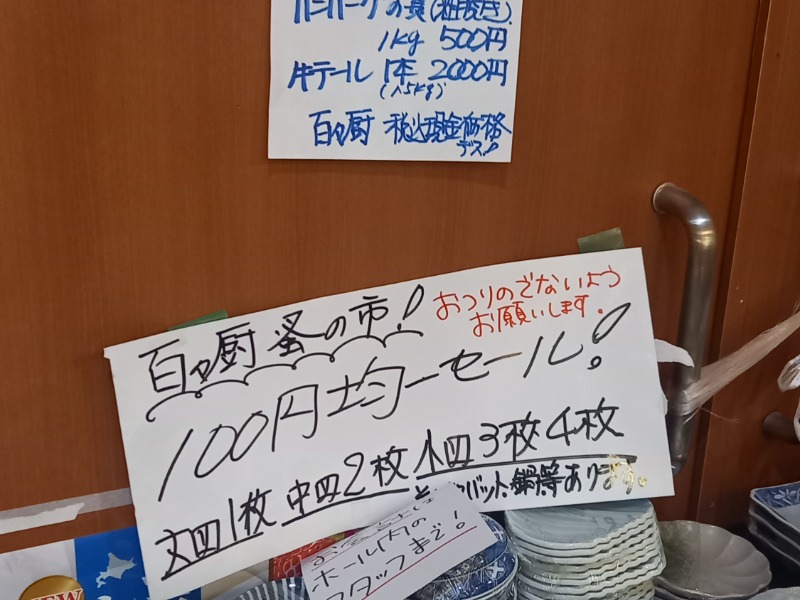 ハンバーグの具(粗挽き)
1kg 500円
牛テール 1本 2000円
(1.5kg)
百々厨 税込現金価格
デス!
百々厨 蚤の市!
おつりのでないよう
お願いします。
100円均一セール!
大皿1枚 中皿2枚 小皿3枚 4枚
バット、鍋等あります。
ホール内の
スタッフまで!
NEW